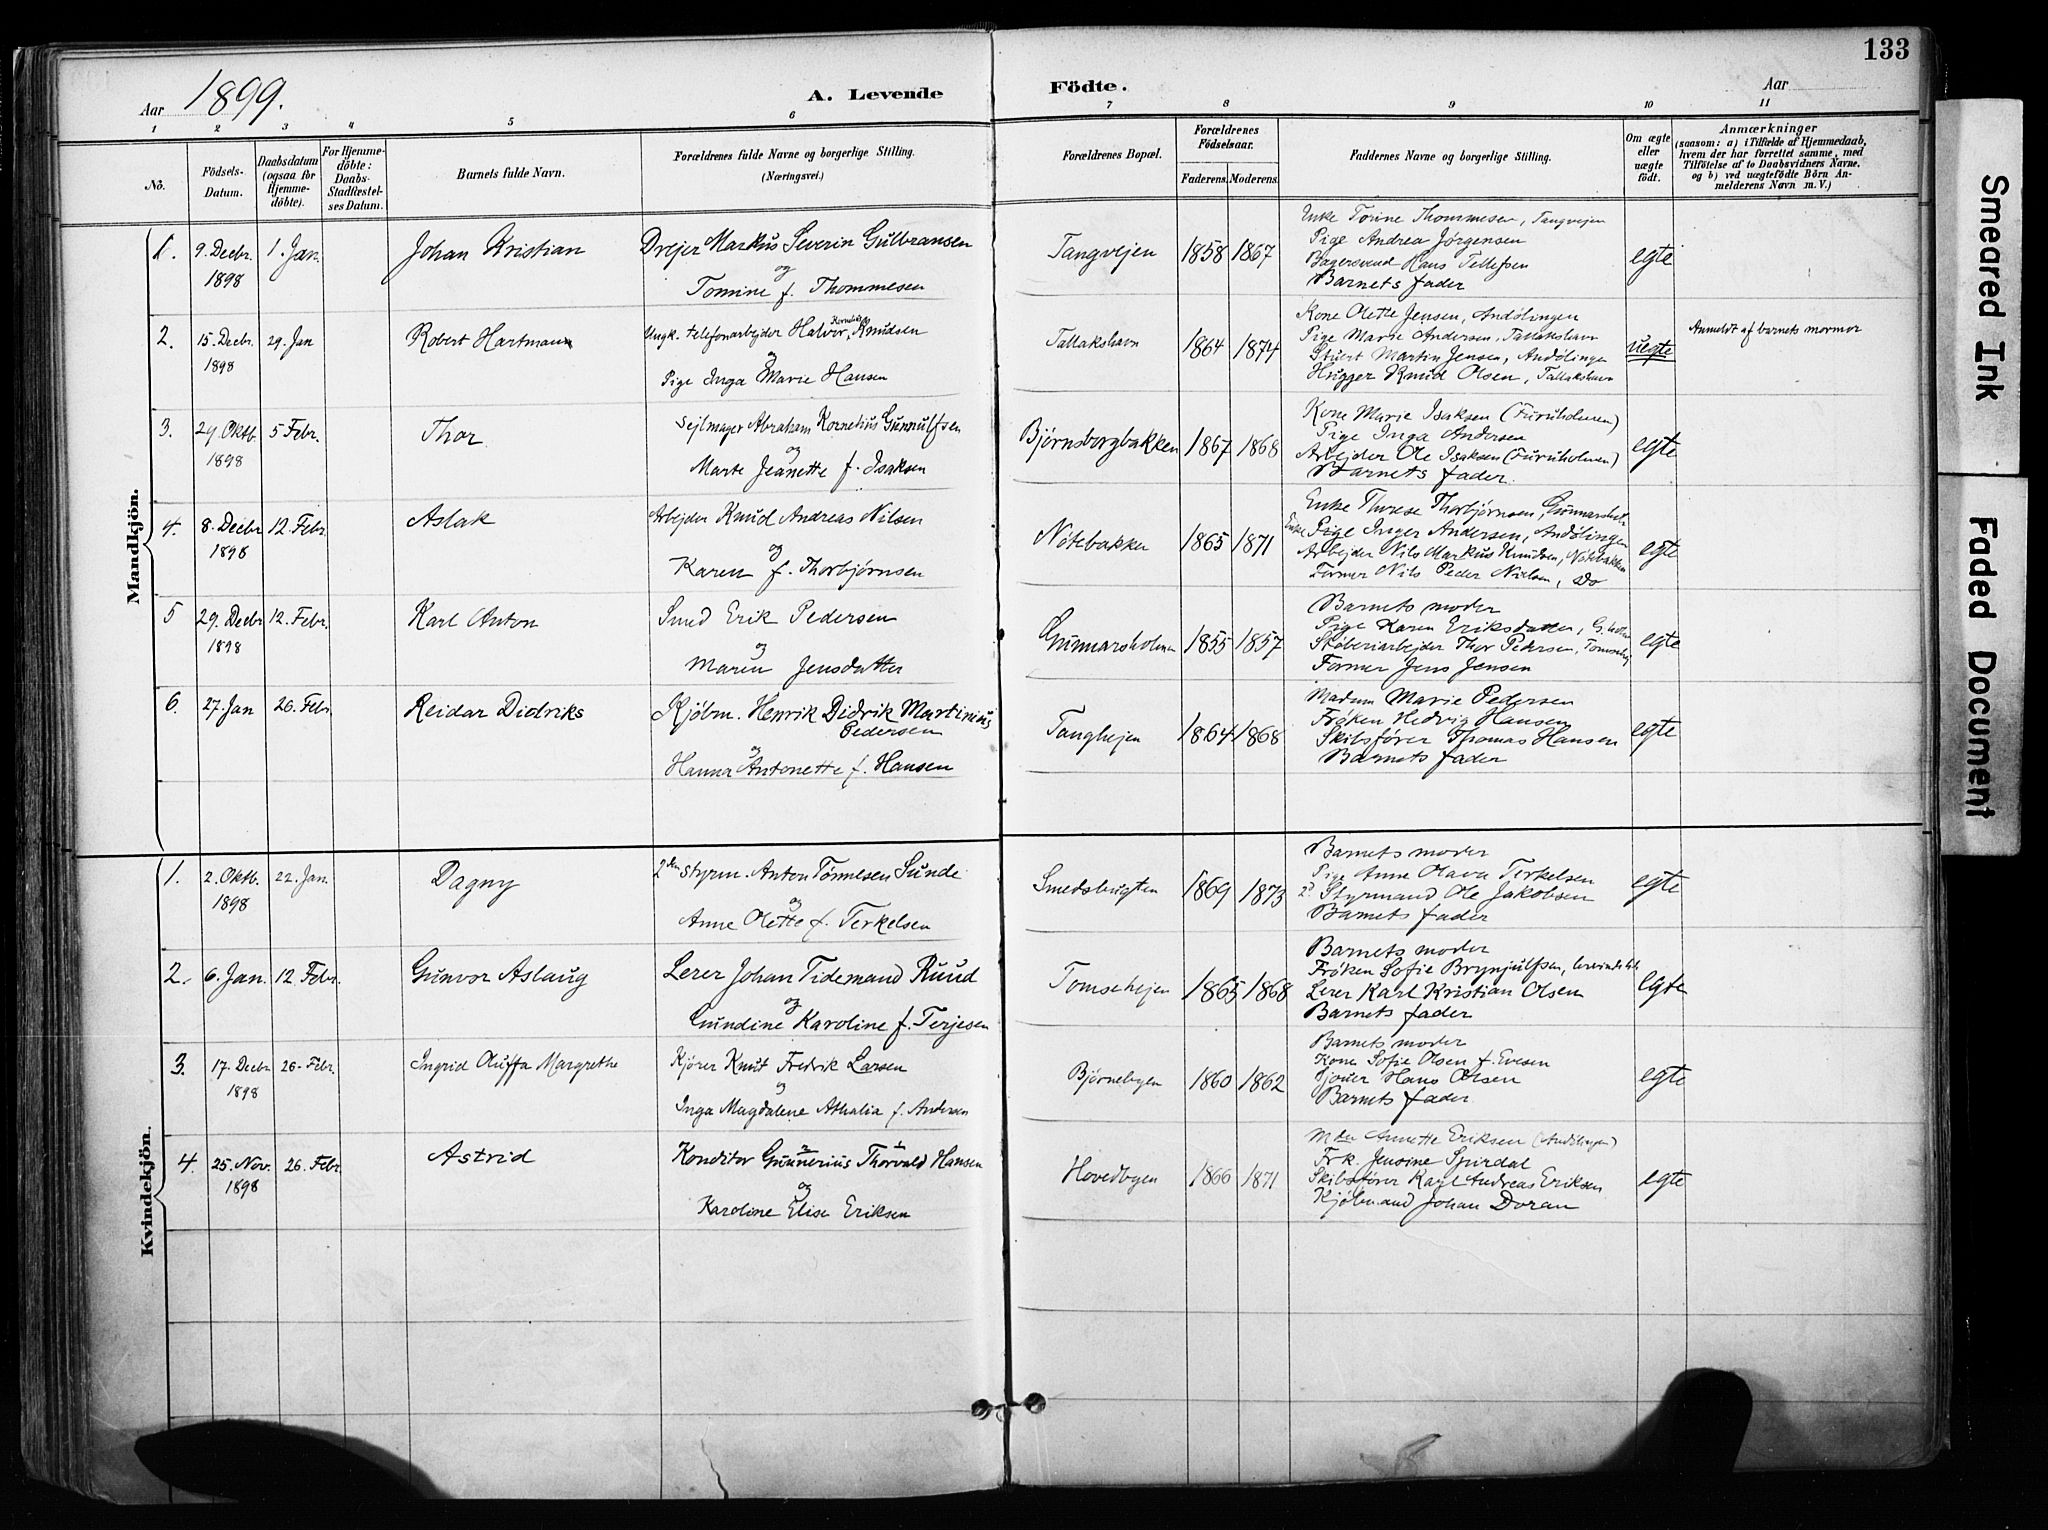 133
Aar 1899. A. Levende Födte. Aar
1 2 3 4 5 6 7 8 9 10 11
No. Födsels-Datum. Daabsdatum (ogsaa for Hjemmedöbte). For Hjemmedöbte: Daabs-Stadfæstelses Datum. Barnets fulde Navn. Forældrenes fulde Navne og borgerlige Stilling. (Næringsvei.) Forældrenes Bopæl. Forældrenes Födselsaar. Faderens. Moderens. Faddernes Navne og borgerlige Stilling. Om ægte eller uægte födt. Anmærkninger (saasom: a) i Tilfælde af Hjemmedaab, hvem der har forrettet samme, med Tilföielse af to Daabsvidners Navne. og b) ved uægtefödte Börn Anmelderens Navn m. V.)
Mandkjön.
1. 9. Decbr. 1898 1. Jan. Johan Kristian Drejer Markus Severin Gulbransen
og
Tomine f. Thommesen
Tangvejen 1858 1867 Enke Torine Thommesen, Tangvejen
Pige Andrea Jørgensen
Bagersvend Hans Tellefsen
Barnets fader
egte
2. 15. Decbr. 1898 29. Jan Robert Hartman Ungk. telefonarbejder Halvor Knudsen
og
Pige Inga Marie Hansen
Tallakshavn 1864 1874 Kone Olette Jensen, Andølingen
Pige Marie Andersen, Tallakshavn
Stuert Martin Jensen, Andølingen
Hugger Knud Olsen, Tallakshavn
uegte Anmeldt af barnets mormor
3. 29. Oktb. 1898 5 Febr. Thor Sejlmager Abraham Kornelius Gunnulfsen
og
Marte Jeanette f. Isaksen
Bjørnsborgbakken 1867 1868 Kone Marie Isaksen (Furuholmen)
Pige Inga Andersen
Arbejder Ole Isaksen (Furuholmen)
Barnets fader
egte
4. 8. Decbr 1898 12. Febr. Aslak Arbejder Knud Andreas Nilsen
og
Karen f. Thorbjørnsen
Nötebakken 1865 1871 Enke Therese Thorbjörnsen,
Pige Inger Andersen, Andølingen
Arbejder Nils Markus Knudsen, Nötebakken
Former Nils Peder Nielsen, Do
egte
5 29. Decbr 1898 12. Febr. Karl Anton Smed Erik Pedersen
og
Maren Jensdatter
Gunnarsholmen 1855 1857 Barnets moder
Pige Karen Eriksdatter,
Støberiarbejder Thor Pedersen,
Former Jens Jensen
egte
6. 27. Jan 26. Febr. Reidar Didriks Kjöbm. Henrik Didrik Martinius Pedersen
og
Hanna Antonette f. Hansen
Tanghejen 1864 1868 Madam Marie Pedersen
Frøken Hedvig Hansen
Skibsfører Thomas Hansen
Barnets fader
egte
Kvindekjön.
1. 2. Oktb. 1898 22. Jan. Dagny 2den Styrm. Anton Tönnesen Sunde
og
Anne Olette f. Terkelsen
Smedsbugten 1869 1873 Barnets moder
Pige Anne Olava Terkelsen
2d Styrmand Ole Jakobsen
Barnets fader
egte
2. 6. Jan. 12. Febr. Gunvor Aslaug Lerer Johan Tidemand Ruud
og
Gundine Karoline f. Terjesen
Tomsehejen 1865 1868 Barnets moder
Frøken Sofie Brynjulfsen,
Lerer Karl Kristian Olsen
Barnets fader
egte
3. 17. Decbr 1898 26. Febr. Ingrid Auffa Margrethe Kjörer Knut Fredrik Larsen
og
Inga Magdalene Athalia f. Andersen
Bjørnebyen 1860 1862 Barnets moder
Kone Sofie Olsen f. Evesen
Hans Olsen
Barnets fader
egte
4. 25. Nov. 1898 26. Febr Astrid Konditor Gunnerius Thorvald Hansen
og
Karoline Elise Eriksen
Hovedbyen 1866 1871 Annette Eriksen (Andølingen)
Frk. Jensine Spirdal
Skibsfører Karl Andreas Eriksen
Kjöbmand Johan Doran
egte
Smeared Ink
Faded Document